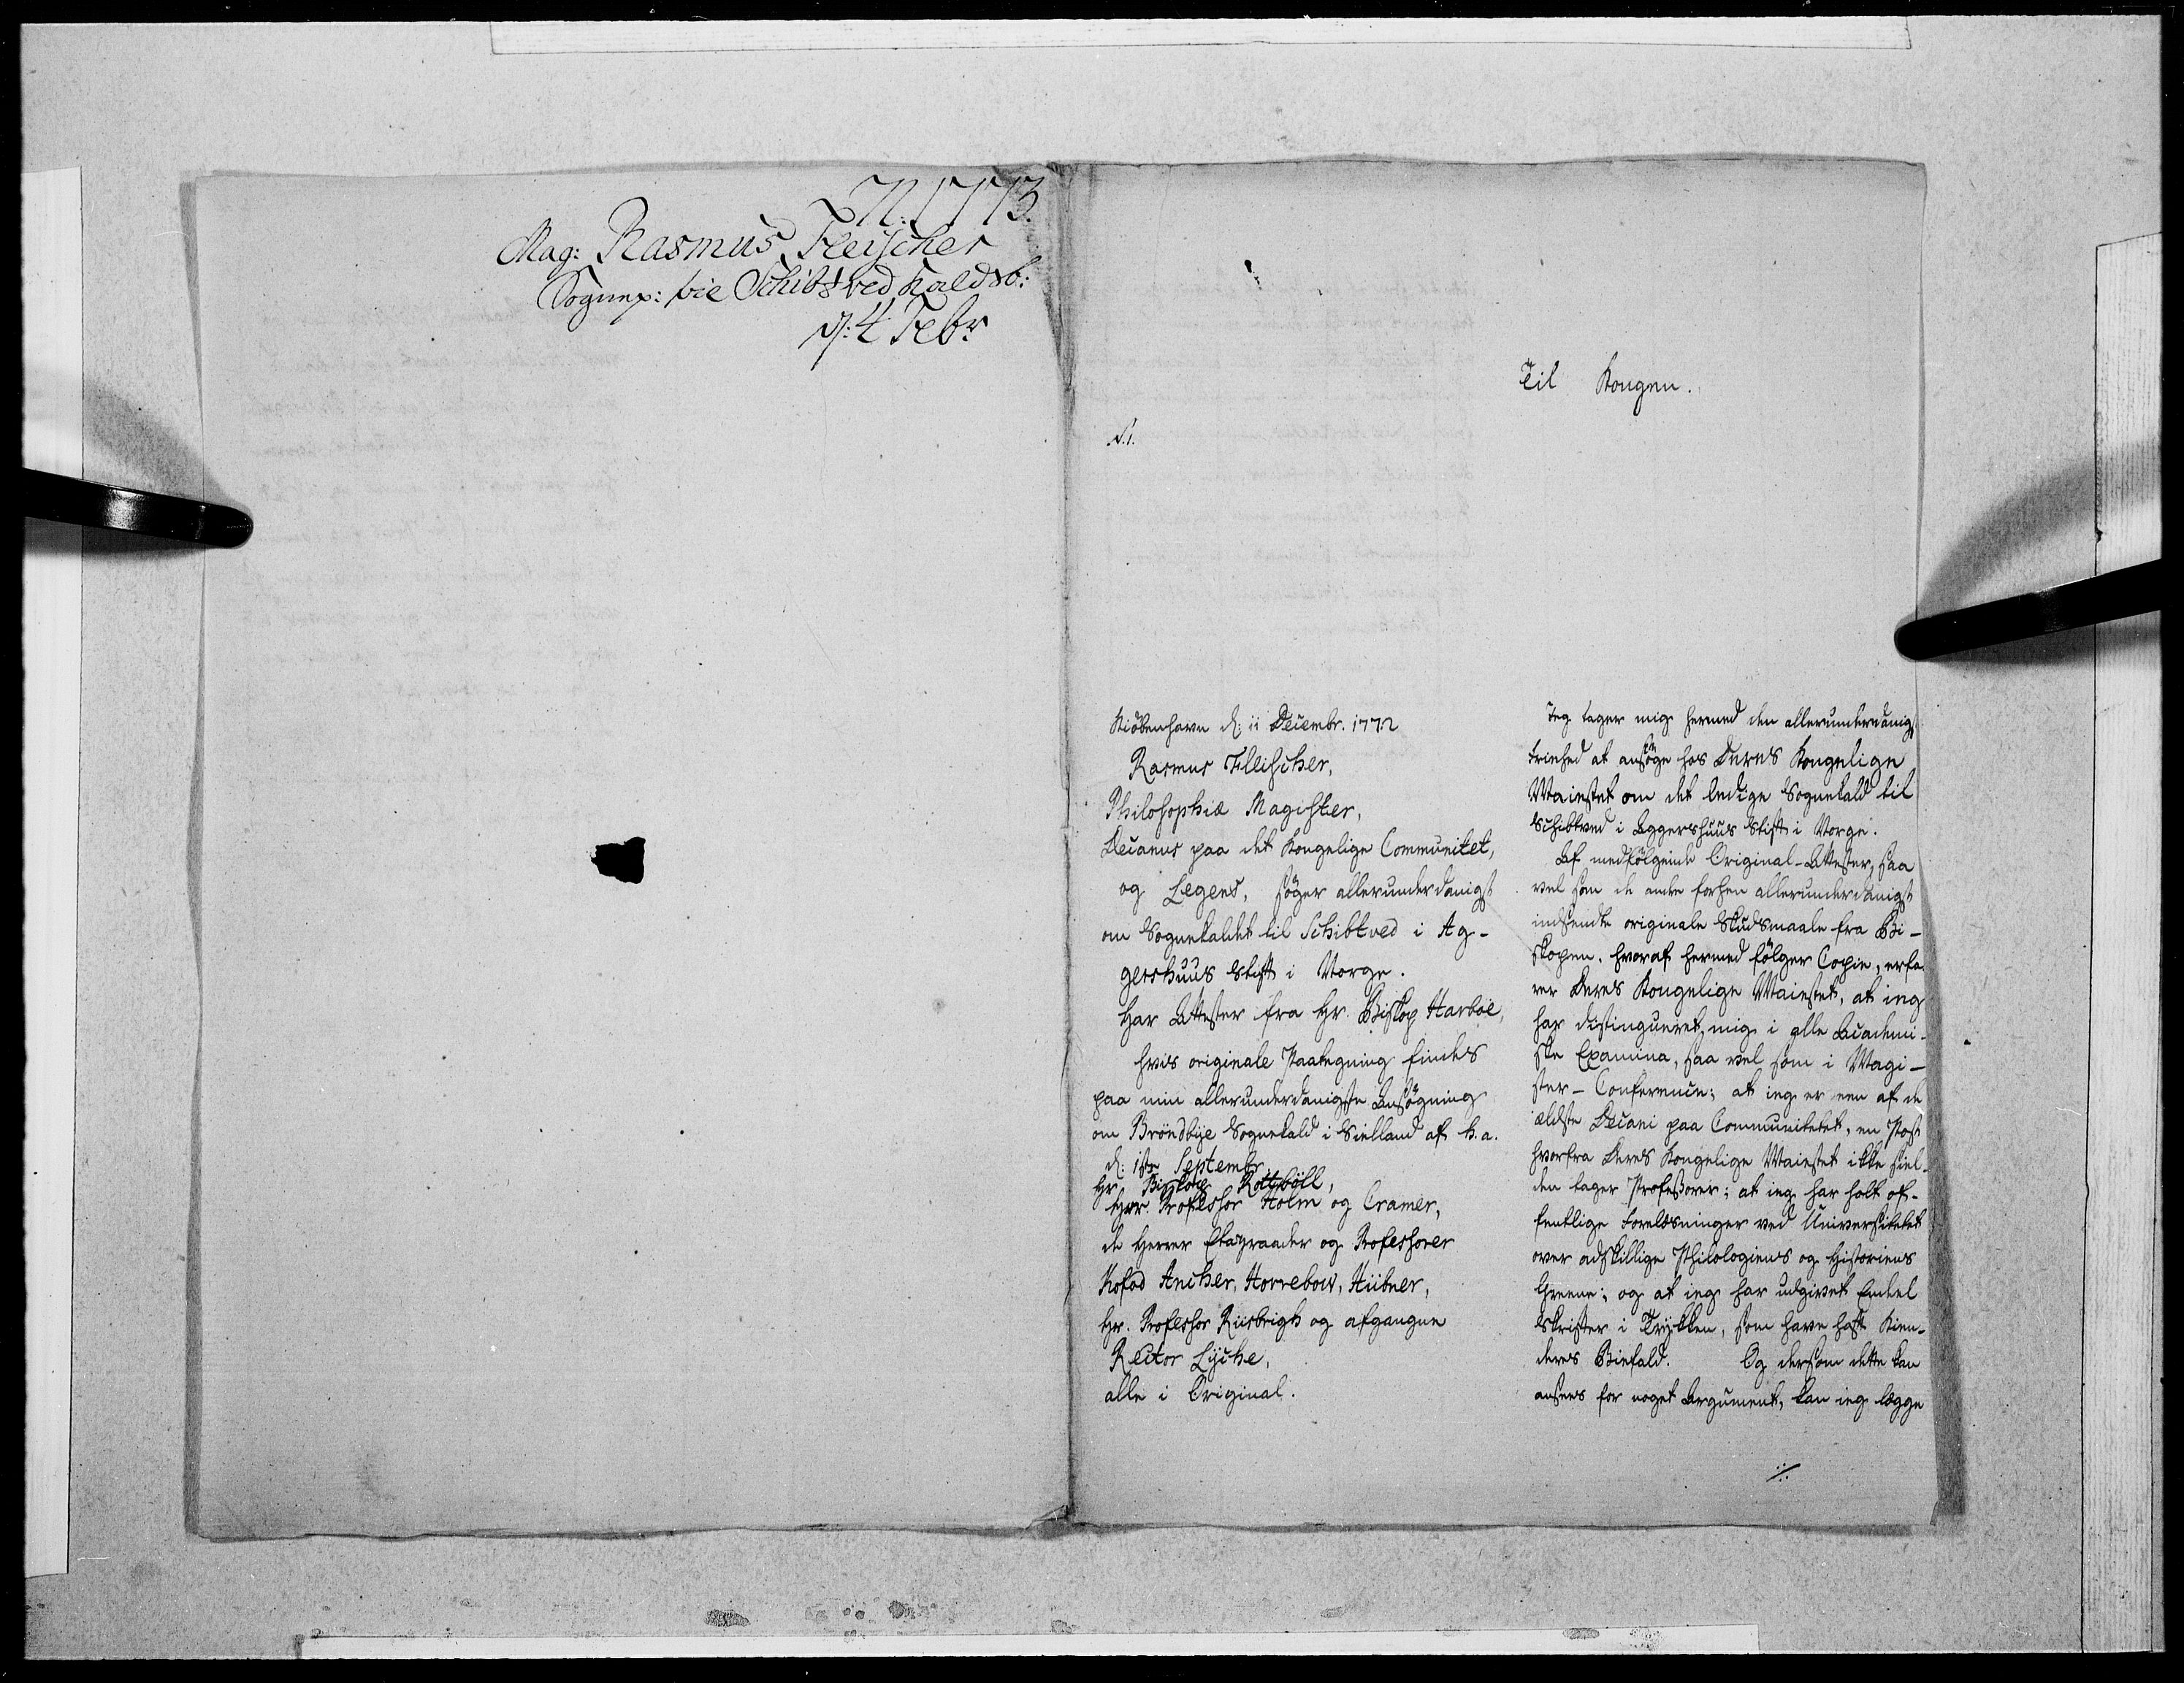 Mag: Rasmus Fleischer
Sognep: til Schibtved Kaldsb:
d: 4 Febr
Til Kongen.
N.1.
Kiöbenhavn d: 11 Decembr. 1772
Rasmus Fleischer,
Philosophiæ Magister,
Decanus paa det Kongelige Communitet,
og Legens, søger allerunderdanigst
om Sognekaldet til Schibtved i Ag-
gershuus Stift i Norge.
Har Attester fra Hr. Biskop Harboe,
hvis originale Paategning findes
paa min allerunderdanigste Ansøgning
om Bröndbye Sognekald i Sielland af h.a.
d: 1ste Septembr.
Hr. Biskop Rottböll,
Herr Professor Holm og Cramer,
de Herrer Etatzraader og Professorer
Kofod Ancher, Horrebow, Hübner,
Hr. Professor Riisbrigh og afgangne
Rector Lyche,
alle i Original.
Jeg tager mig hermed den allerunderdanigst
Friehed at ansøge hos Deres Kongelige
Maiestet om det ledige Sognekald til
Schibtved i Aggershuus Stift i Norge.
Af medfølgende Original-Attester, saa
vel som de andre forhen allerunderdanigst
indsendte originale Skudsmaale fra Bi-
skopen, hvoraf hermed følger Copie, erfa-
rer Deres Kongelige Maiestet, at ieg
har distingueret mig i alle Academi-
ske Examina, saa vel som i Magi-
ster-Conferencen; at ieg er een af de
ældste Decani paa Communitetet, en Post
hvorfra Deres Kongelige Maiestet ikke siel-
den tager Professorer; at ieg har holt of-
fentlige Forelæsninger ved Universitetet
over adskillige Philologiens og Historiens
Greene; og at ieg har udgivet Endeel
Skrifter i Trykken, som have haft Kien-
deres Biefald. Og dersom dette kan
ansees for noget Argument, kan ieg lægge